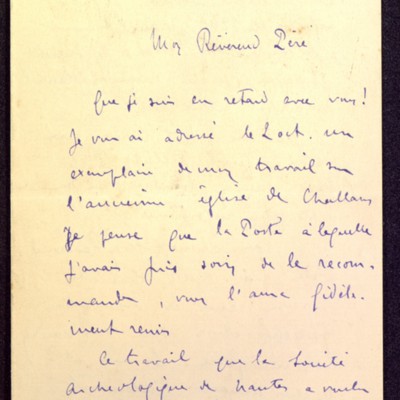 Mon Révérend Père
Que je suis en retard avec vous !
Je vous ai adressé le 2 oct. un
exemplaire de mon travail sur
l'ancienne église de Challans
Je pense que la Poste à laquelle
j'avais pris soin de le recom-
mander, vous l'aura fidèle-
ment remis
Ce travail que la Société
archéologique de Nantes a voulu